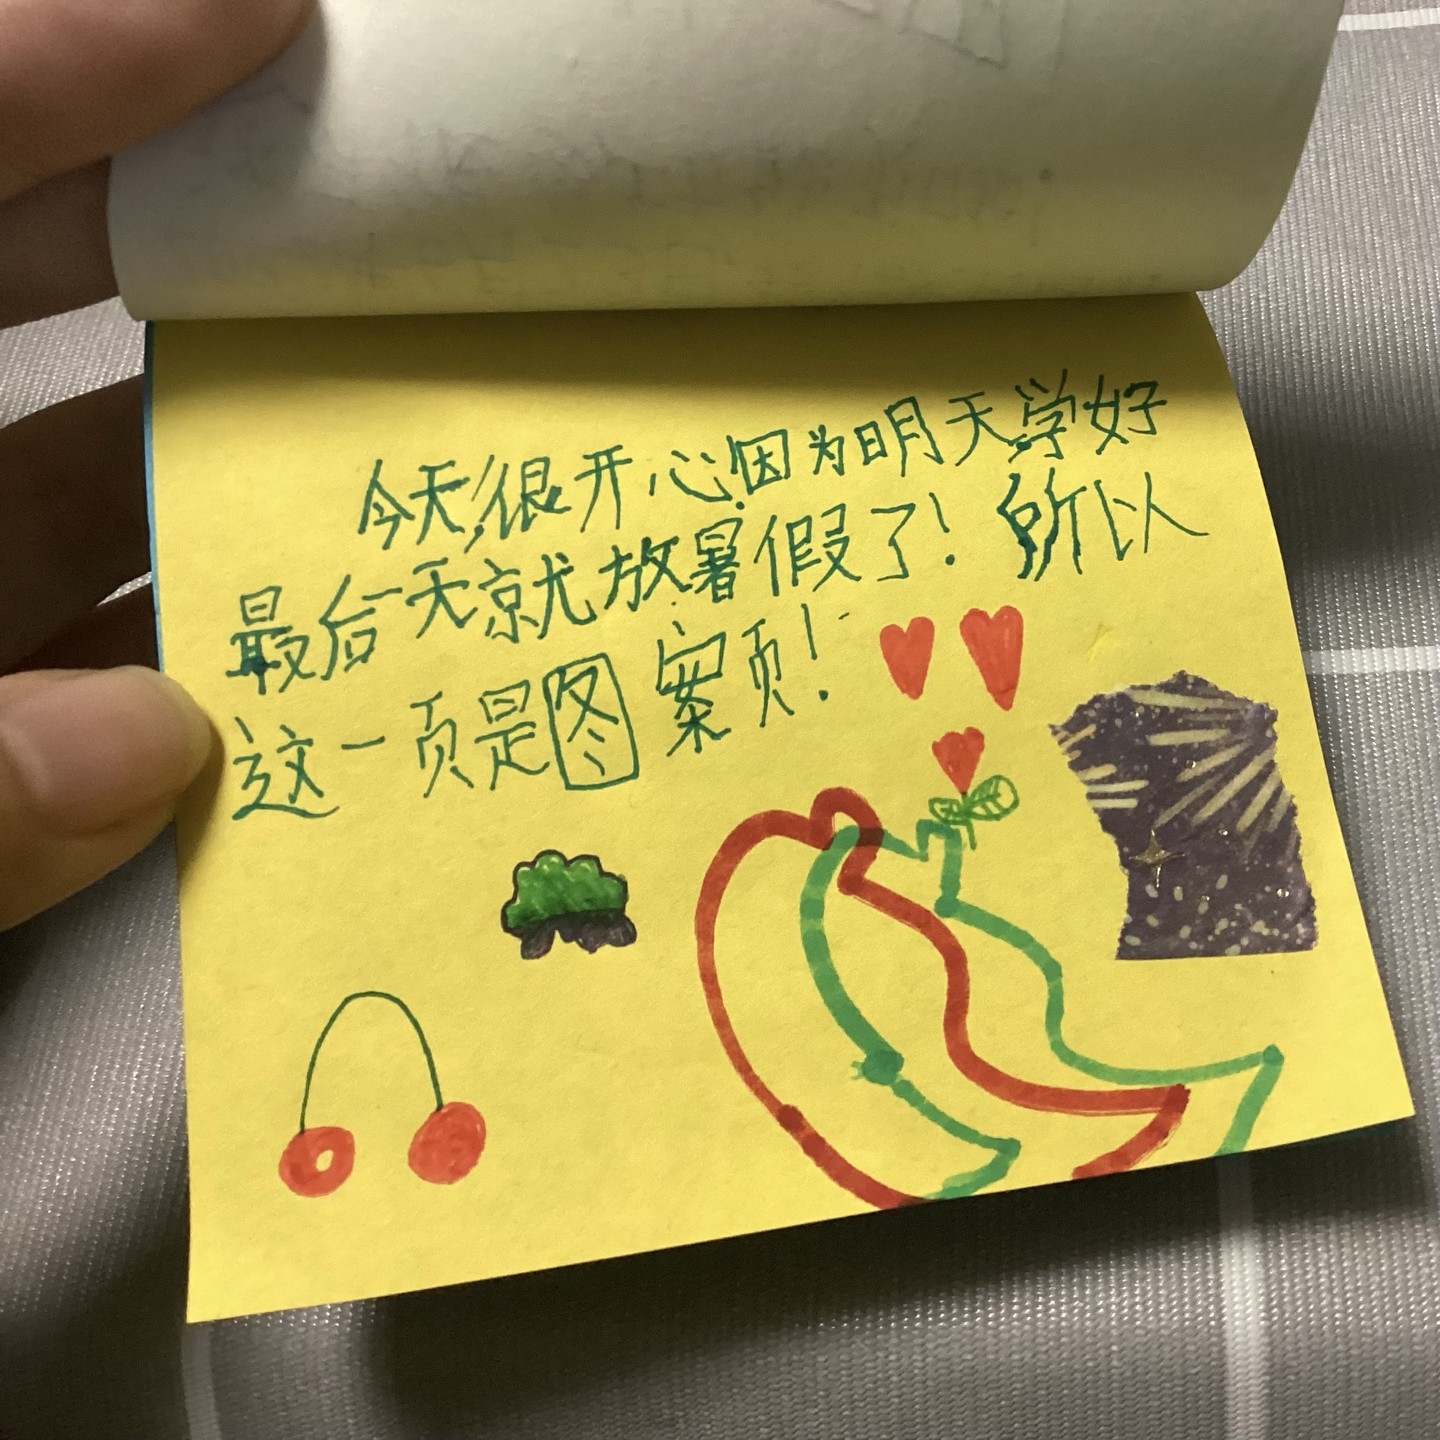 今天很开心因为明天学好
最后一天就放暑假了！所以
这一页是图案页！